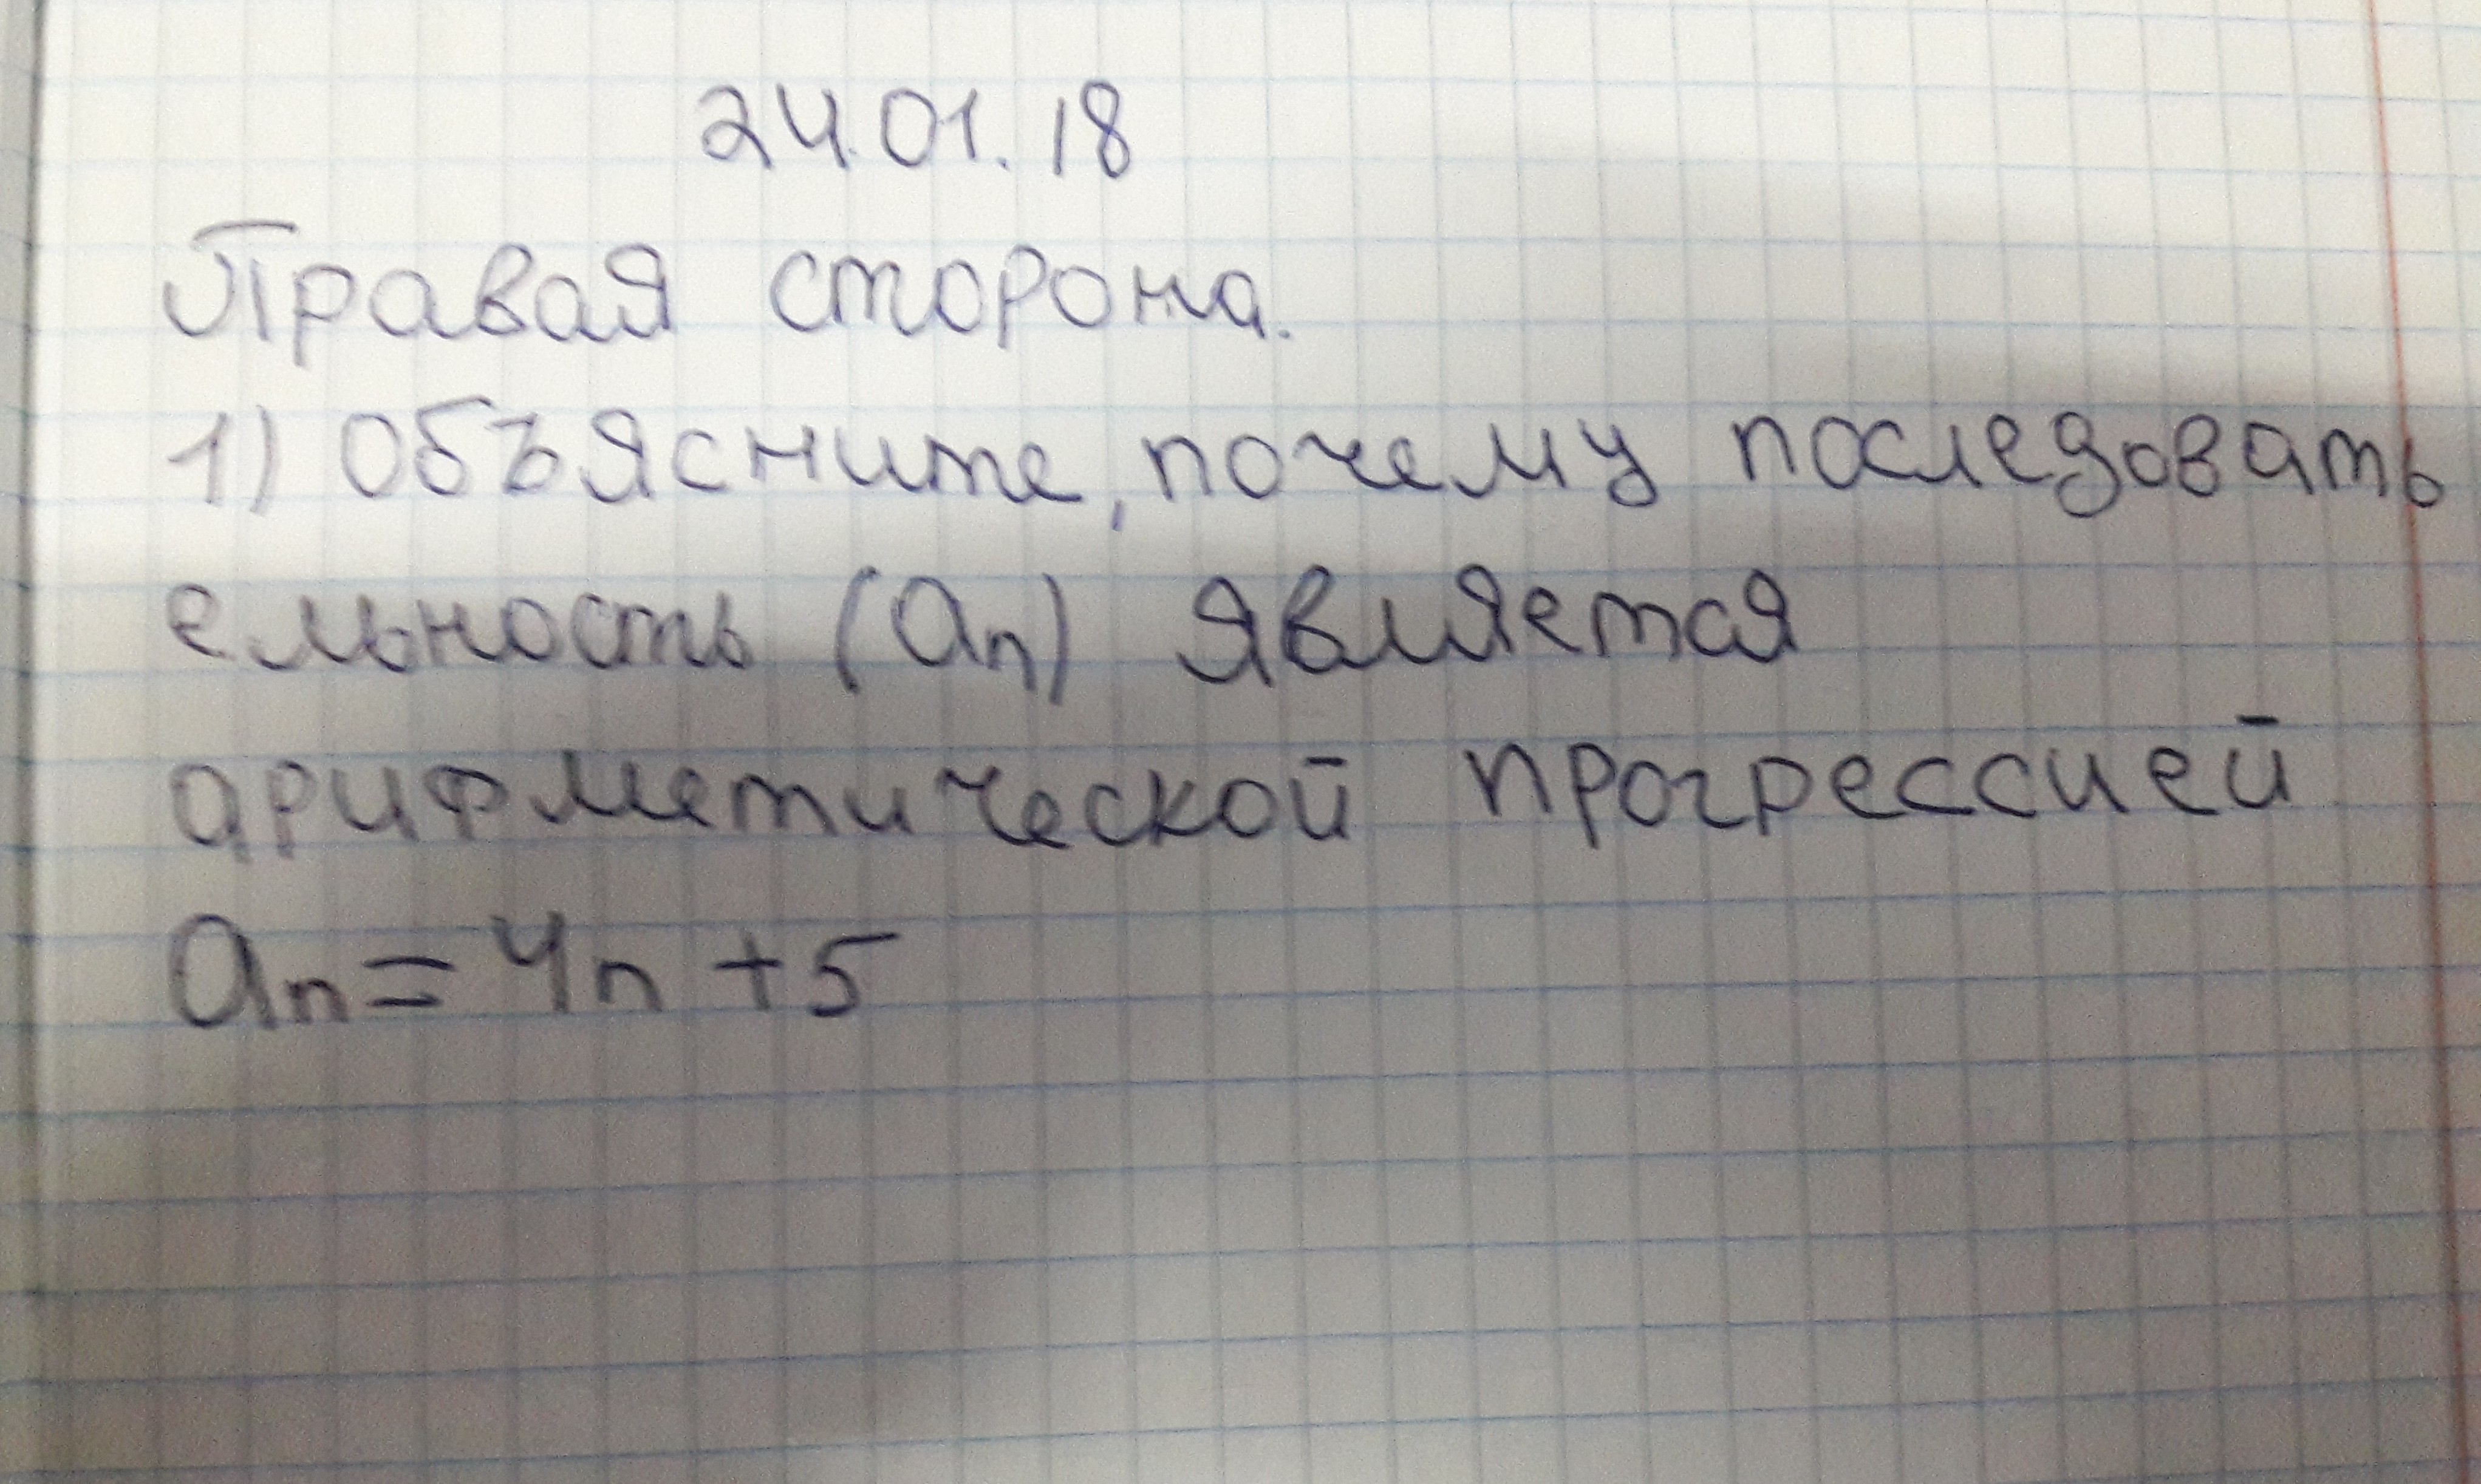 24.01.18
Правая сторона.
1) Объясните, почему последовать
ельность (an) является
арифметической прогрессией
an = 4n + 5